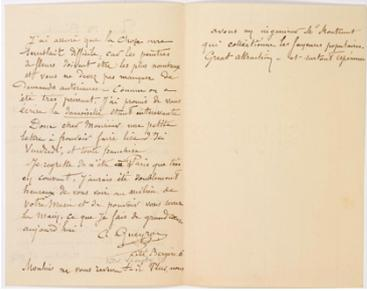 J'ai assuré que la chose me
semblait difficile, car les peintres
de fleurs doivent être les plus nombreux
et vous ne devez pas manquer de
demandes antérieures - Comme on a
été très pressant, j'ai promis de vous
écrire la demoiselle étant intéressante
Donc cher Monsieur une petite
lettre à pouvoir faire lire d'ici
Vendredi, et toute franchise
Je regrette de n'être à Paris que très
en courant. J'aurais été doublement
heureux de vous voir au milieu de
votre Musée et de pouvoir vous serrer
la main, ce que je fais de grand cœur
aujourd'hui
C Gueyton
6
Moulins ne vous verra-t-il Plus nous
avons un ingénieur de
qui collectionne les fayences populaires.
Great attraction - et surtout